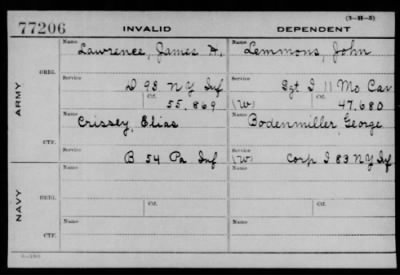 (3-H-3)
77206 INVALID DEPENDENT
Name Name
Lawrence, James H. Lemmons, John
ARMY
ORIG. Service Service
D 93 NY Inf Sgt I 11 Mo Cav
Ctf. Ctf.
55.869 (W) 47.680
Name Name
Crissey, Elias Bodenmiller, George
CTF. Service Service
B 54 Pa Inf (W) Corp I 83 NY Inf
NAVY
ORIG. Name Name
Ctf. Ctf.
CTF. Name Name